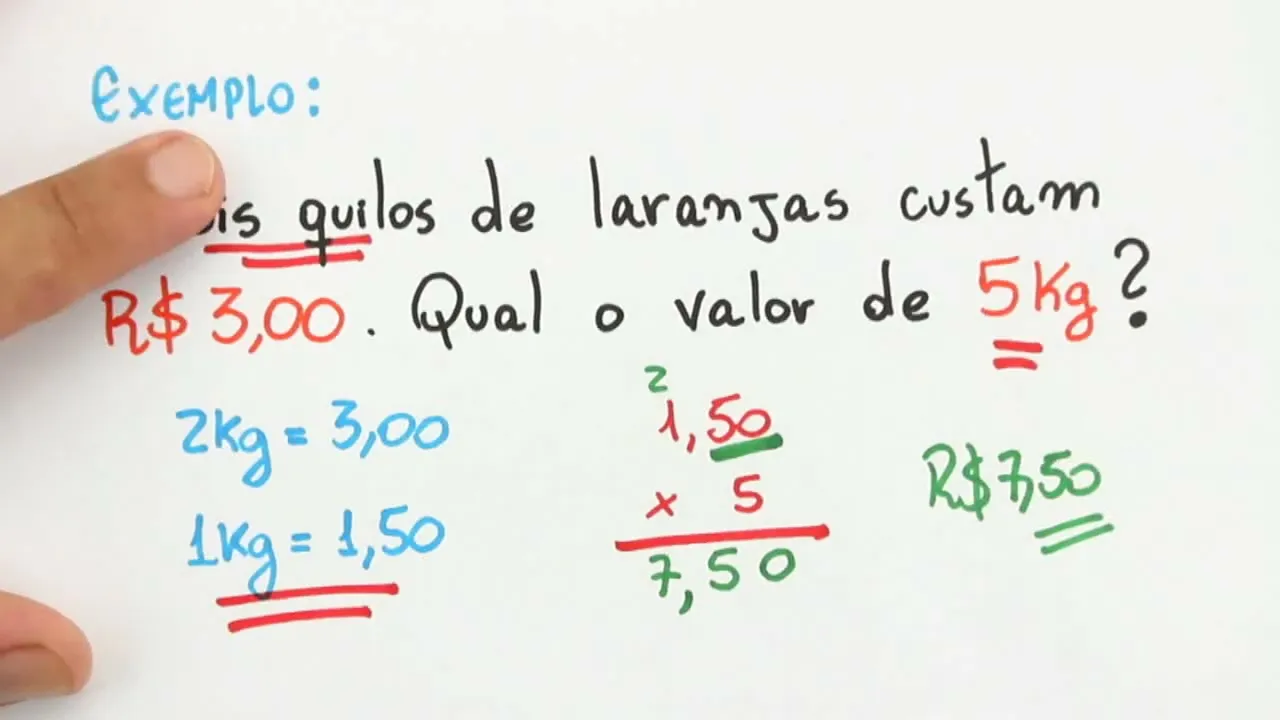 EXEMPLO:
quilos de laranjas custam
R$ 3,00. Qual o valor de 5Kg?
2Kg = 3,00
1Kg = 1,50
2
1,50
x 5
7,50
R$7,50